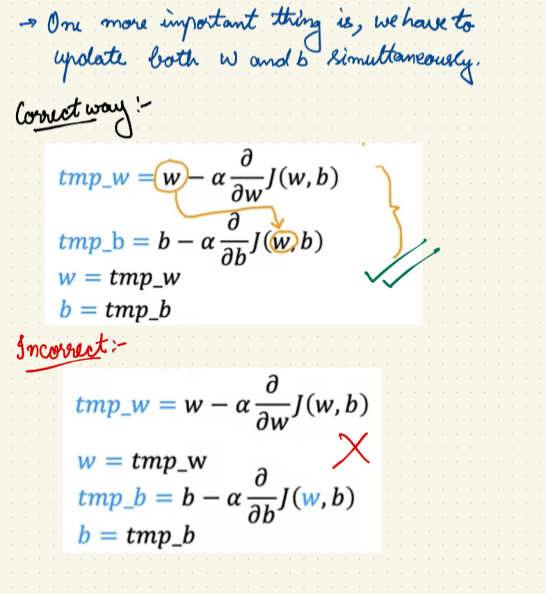 → One more important thing is, we have to
update both w and b simultaneously.
Correct way :-
tmp_w = w − α ∂/∂w J(w, b)
tmp_b = b − α ∂/∂b J(w, b)
w = tmp_w
b = tmp_b
Incorrect :-
tmp_w = w − α ∂/∂w J(w, b)
w = tmp_w
tmp_b = b − α ∂/∂b J(w, b)
b = tmp_b